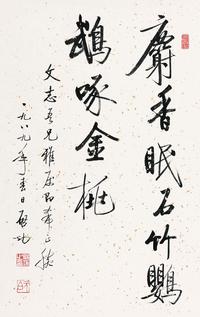 麝香眠石竹鸚
鵡啄金桃
文志吾兄雅属即希正腕
一九八九年春日啓功